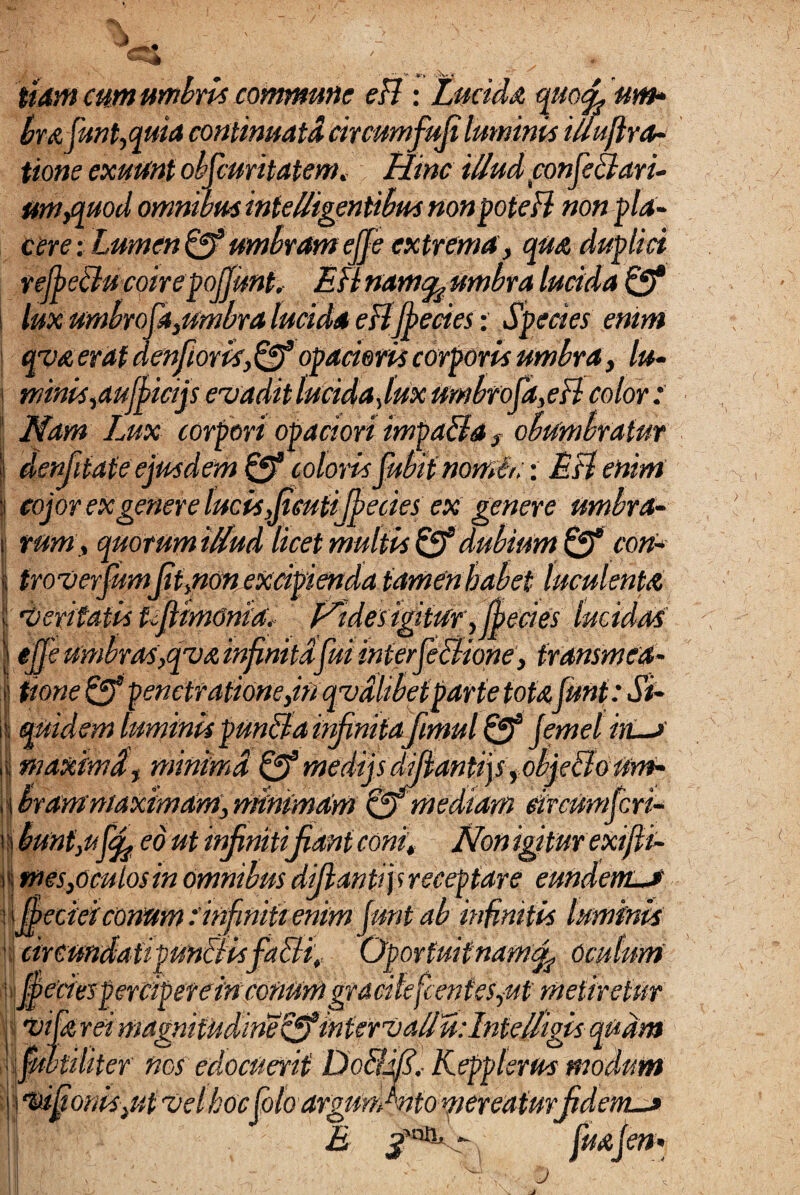 tiam cum umbris commune eſt : Lucidæ quoq; um-
bræ ſunt, quia continuatâ circumfuſi luminis illuſtra-
tione exuunt obſcuritatem. Hinc illud conſectari-
um, quod omnibus intelligentibus non poteſt non pla-
cere: Lumen & umbram eſſe extrema, quæ duplici
reſpectu coire poſſunt. Eſt namq; umbra lucida &
lux umbroſa, umbra lucida eſt ſpecies: Species enim
qvæ erat denſioris, & opacioris corporis umbra, lu-
minis, auſpicijs evadit lucida, lux umbroſa, eſt color:
Nam Lux corpori opaciori impacta, obumbratur
denſitate ejusdem & coloris ſubit nomen: Eſt enim
cojor ex genere lucis, ſicuti ſpecies ex genere umbra-
rum, quorum illud licet multis & dubium & con-
troverſum ſit, non excipienda tamen habet luculentæ
veritatis teſtimonia. Vides igitur, ſpecies lucidas
eſſe umbras, qvæ infinitâ ſui interſectione, transmea-
tione & penetratione, in qvâlibet parte totæ ſunt: Si-
quidem luminis puncta infinita ſimul & ſemel in
maximâ, minimâ & medijs diſtantijs, objecto um-
bram maximam, minimam & mediam circumſcri-
bunt, uſq; eò ut infiniti fiant coni. Non igitur exiſti-
mes, oculos in omnibus diſtantijs receptare eundem
ſpeciei conum: infiniti enim ſunt ab infinitis luminis
circundati punctis facti. Oportuit namq; oculum
ſpecies percipere in conum gracileſcentes, ut metiretur
viſæ rei magnitudinē & intervallū: Intelligis quàm
ſubtiliter nos edocuerit Doctiſſ. Kepplerus modum
viſionis, ut vel hoc ſolo argumento mereatur fidem
E 3 ſuæ ſen-